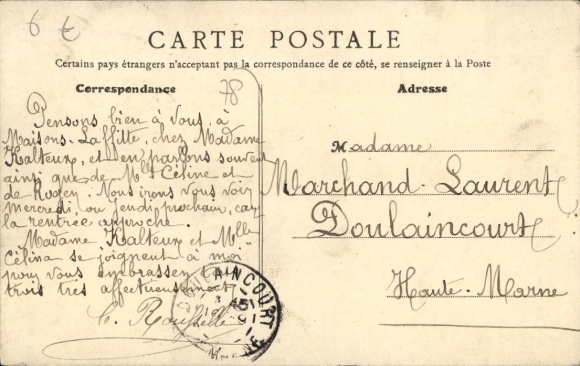 6 €
CARTE POSTALE
Certains pays étrangers n'acceptant pas la correspondance de ce côté, se renseigner à la Poste
Correspondance
78
Pensons bien à vous, à
Maisons-Laffitte, chez Madame
Kalteux, et en parlons souvent
ainsi que de Mlle Céline et
de Roger. Nous irons vous voir
mercredi, ou jeudi prochain, car
la rentrée approche.
Madame Kalteux et Mlle
Célina se joignent à moi
pour vous embrasser tous
trois très affectueusement
C. Rousselle
Adresse
Madame
Marchand-Laurent
Doulaincourt
Haute-Marne
AINCOURT